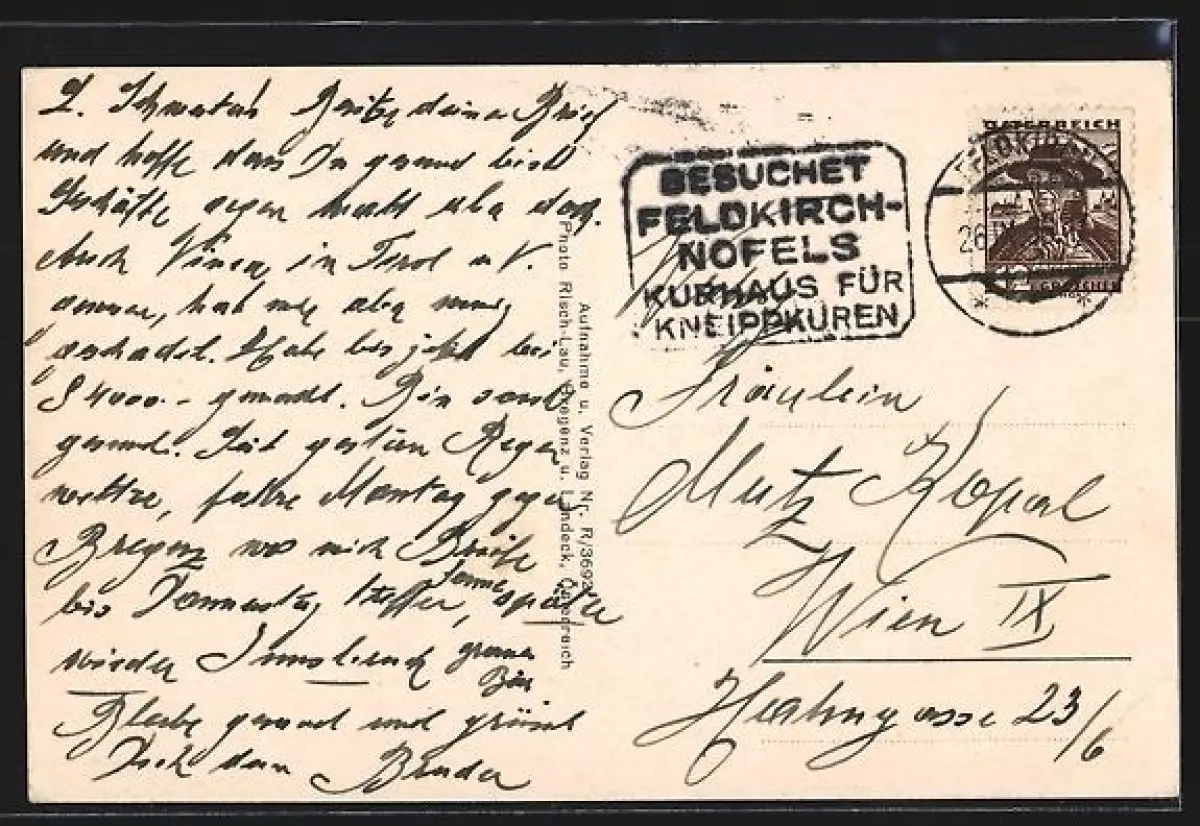 L. Schwester Besitze deinen Brief
und hoffe dass Du gesund bist
Geschäfte gegen
Auch in Tirol u. V.
hat mir aber wenig
geschadet. Habe bis jetzt bei
S 4000.- gemacht. Bin sonst
gesund. Seit gestern Regen
wetter, fahre Montag gegen
Bregenz wo mich Briefe
bis Donnerstag treffen, später
wieder Innsbruck
Bleibe gesund und grüsst
Dich dein Bruder
Aufnahme u. Verlag Nr. R/3692
Photo Risch-Lau, Bregenz u. Landeck, Österreich
BESUCHET
FELDKIRCH-
NOFELS
KURHAUS FÜR
KNEIPPKUREN
ÖSTERREICH
FELDKIRCH
26
Fräulein
Mutz Kopal
Wien IX
Hahngasse 23/6